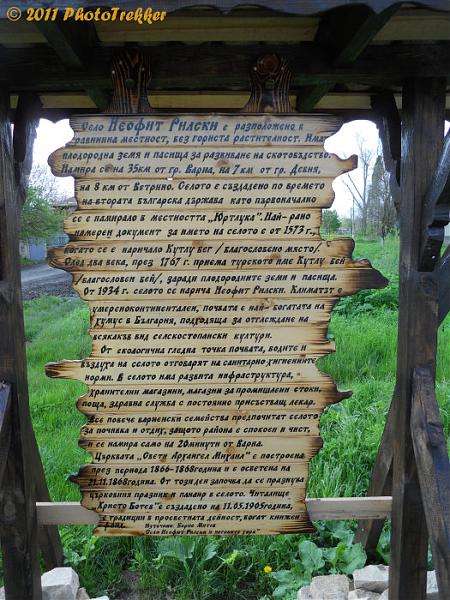 © 2011 PhotoTrekker
Село Неофит Рилски е разположено в
равнинна местност, без гориста растителност. Има
плодородна земя и пасища за развиване на скотовъдство.
Намира се на 35км от гр. Варна, на 7 км от гр. Девня,
на 8 км от Ветрино. Селото е създадено по времето
на втората българска държава като първоначално
се е намирало в местността „Юртлука". Най-рано
намерен документ за името на селото е от 1573 г.,
когато се е наричало Кутлу бег /благословено място/.
След два века, през 1767 г. приема турското име Кутлу бей
/благословен бей/, заради плодородните земи и пасища.
От 1934 г. селото се нарича Неофит Рилски. Климатът е
умереноконтинентален, почвата е най-богатата на
хумус в България, подходяща за отглеждане на
всякакъв вид селскостопански култури.
От екологична гледна точка почвата, водите и
въздуха на селото отговарят на санитарно-хигиенните
норми. В селото има развита инфраструктура,
хранителни магазини, магазини за промишлени стоки,
поща, здравна служба с постоянно присъстващ лекар.
Все повече варненски семейства предпочитат селото
за почивка и отдих, защото района е спокоен и чист,
и се намира само на 20минути от Варна.
Църквата „Свети Архангел Михаил" е построена
през периода 1866-1868година и е осветена на
21.11.1868година. От този ден започва да се празнува
църковния празник и панаир в селото. Читалище
Христо Ботев"е създадено на 11.05.1905година,
с традиции в просветната дейност, богат книжен
фонд.
„Село Неофит Рилски и неговите хора"